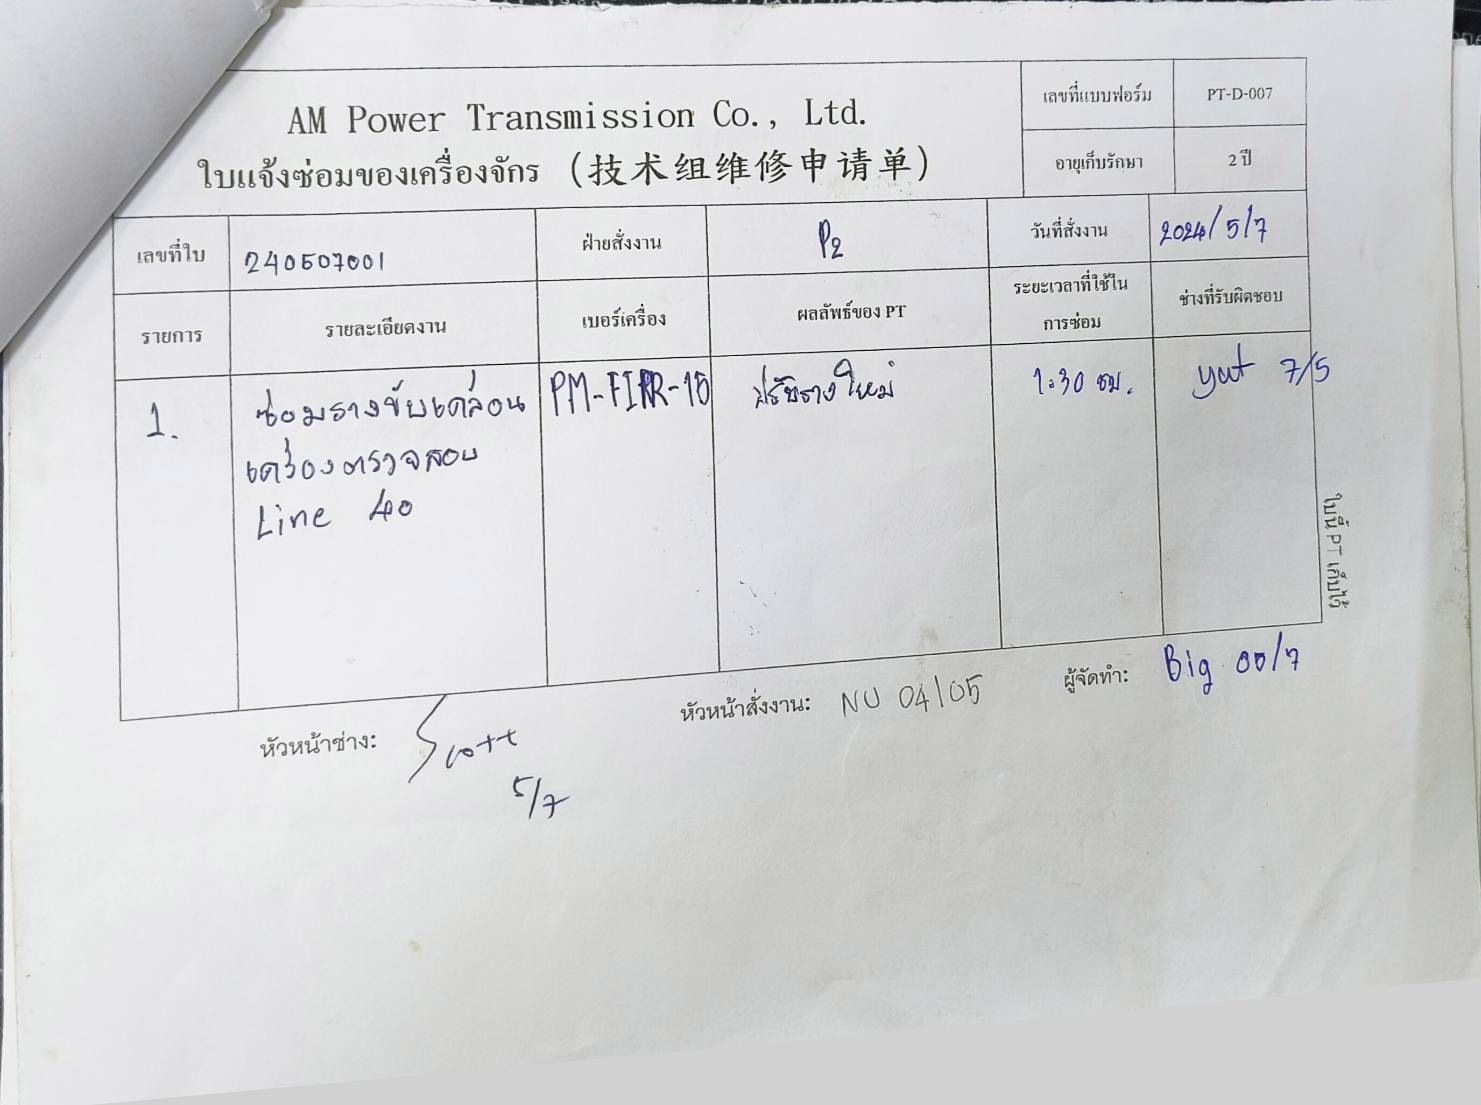 AM Power Transmission Co., Ltd.
ใบแจ้งซ่อมของเครื่องจักร (技术组维修申请单)
เลขที่แบบฟอร์ม PT-D-007
อายุเก็บรักษา 2 ปี
เลขที่ใบ 240507001 ฝ่ายสั่งงาน P2 วันที่สั่งงาน 2024/5/7
รายการ รายละเอียดงาน เบอร์เครื่อง ผลลัพธ์ของ PT ระยะเวลาที่ใช้ใน ช่างที่รับผิดชอบ
การซ่อม
1. ซ่อมรางขับเคลื่อน ปรับรางใหม่ 1:30 ชม. yut 7/5
เครื่องตรวจสอบ
Line 40
ใบนี้ PT เก็บไว้
หัวหน้าช่าง: Scott หัวหน้าสั่งงาน: NU 04/05 ผู้จัดทำ: Big 05/7
5/7